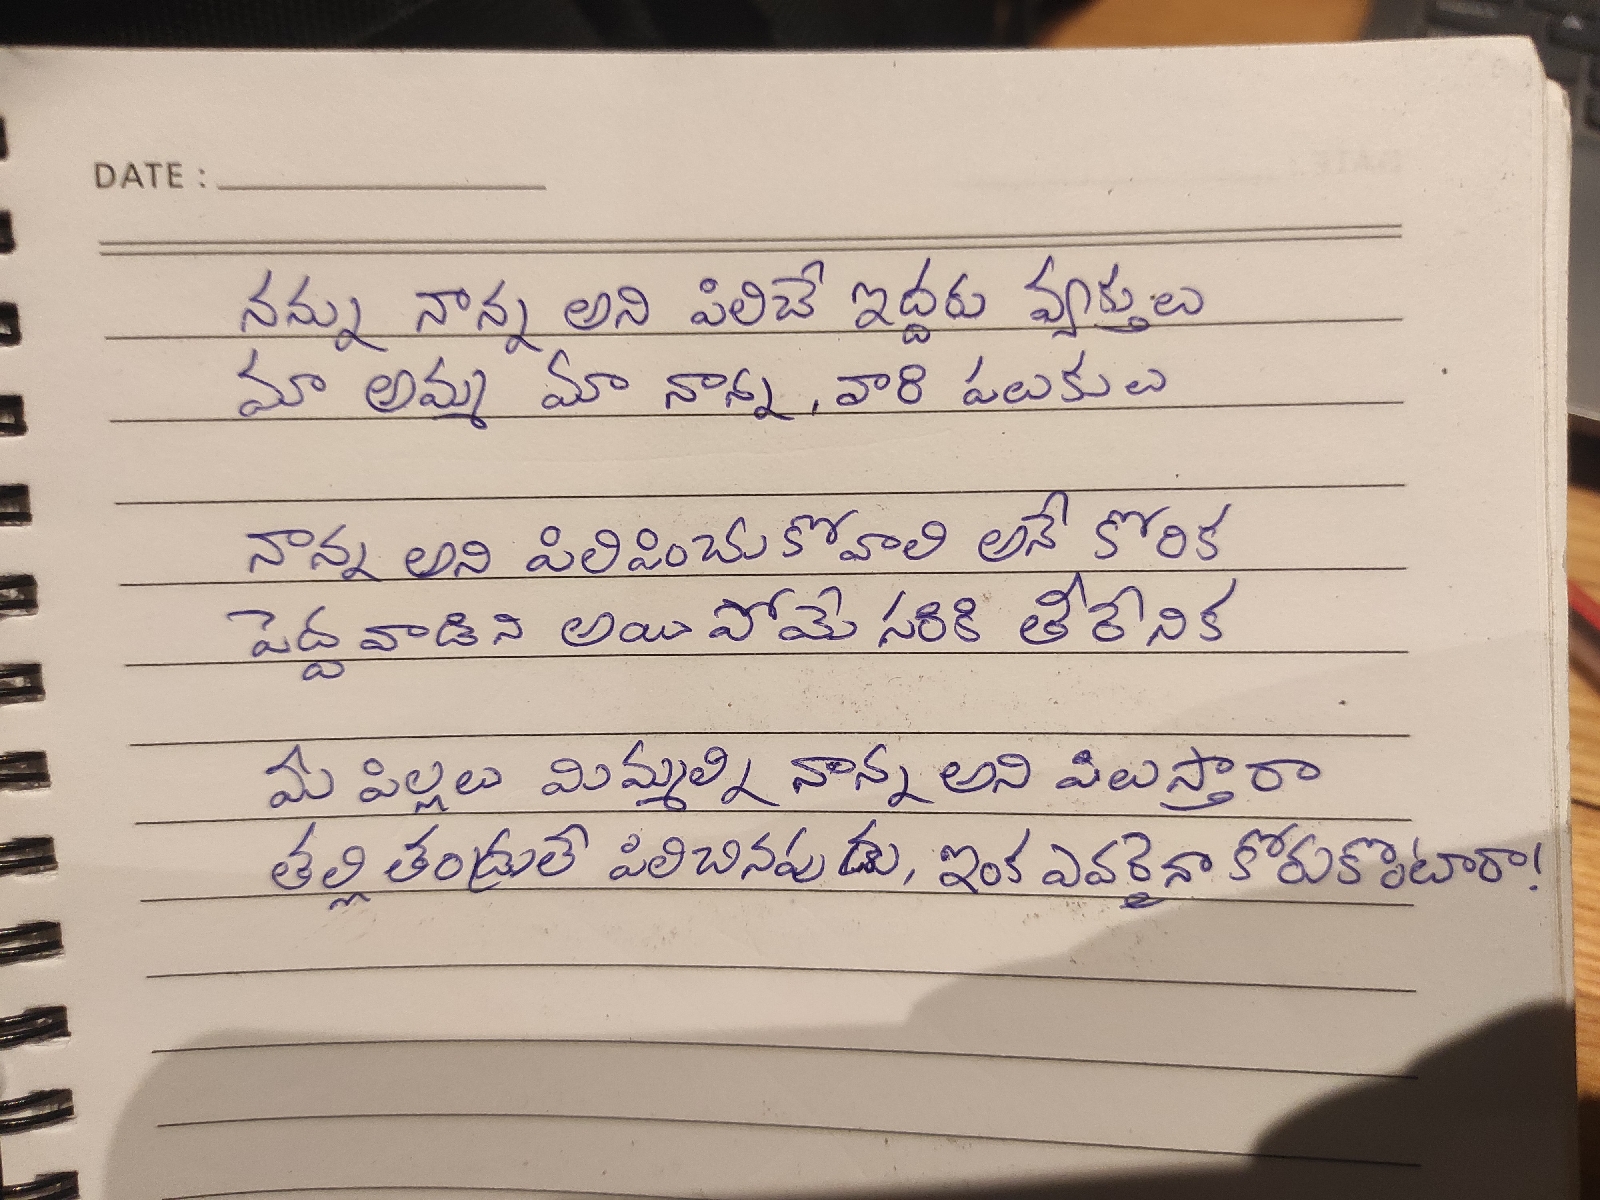 DATE :
నన్ను నాన్న అని పిలిచే ఇద్దరు వ్యక్తులు
మా అమ్మ మా నాన్న, వారి పలుకులు
నాన్న అని పిలిపించుకోవాలి అనే కోరిక
పెద్దవాడిని అయిపోయే సరికి తీరేనిక
మీ పిల్లలు మిమ్మల్ని నాన్న అని పిలుస్తారా
తల్లి తండ్రులే పిలిచినపుడు, ఇంక ఎవర్నైనా కోరుకొంటారా!